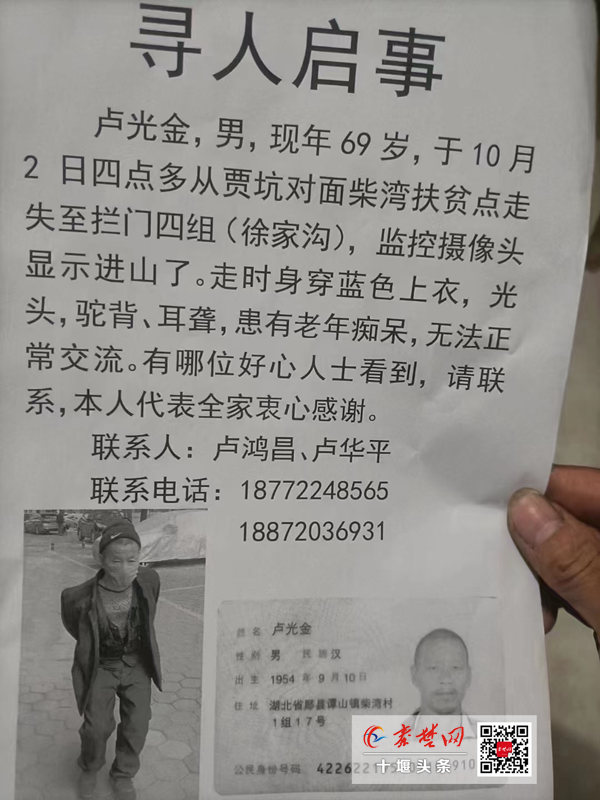 寻人启事
卢光金，男，现年69岁，于10月
2 日四点多从贾坑对面柴湾扶贫点走
失至拦门四组（徐家沟），监控摄像头
显示进山了。走时身穿蓝色上衣，光
头，驼背、耳聋，患有老年痴呆，无法正
常交流。有哪位好心人士看到，请联
系，本人代表全家衷心感谢。
联系人：卢鸿昌、卢华平
联系电话：18772248565
18872036931
姓名 卢光金
性别 男 民族 汉
出生 1954 年 9 月 10 日
住址 湖北省郧县谭山镇柴湾村
1组17号
公民身份号码
秦楚网
十堰头条